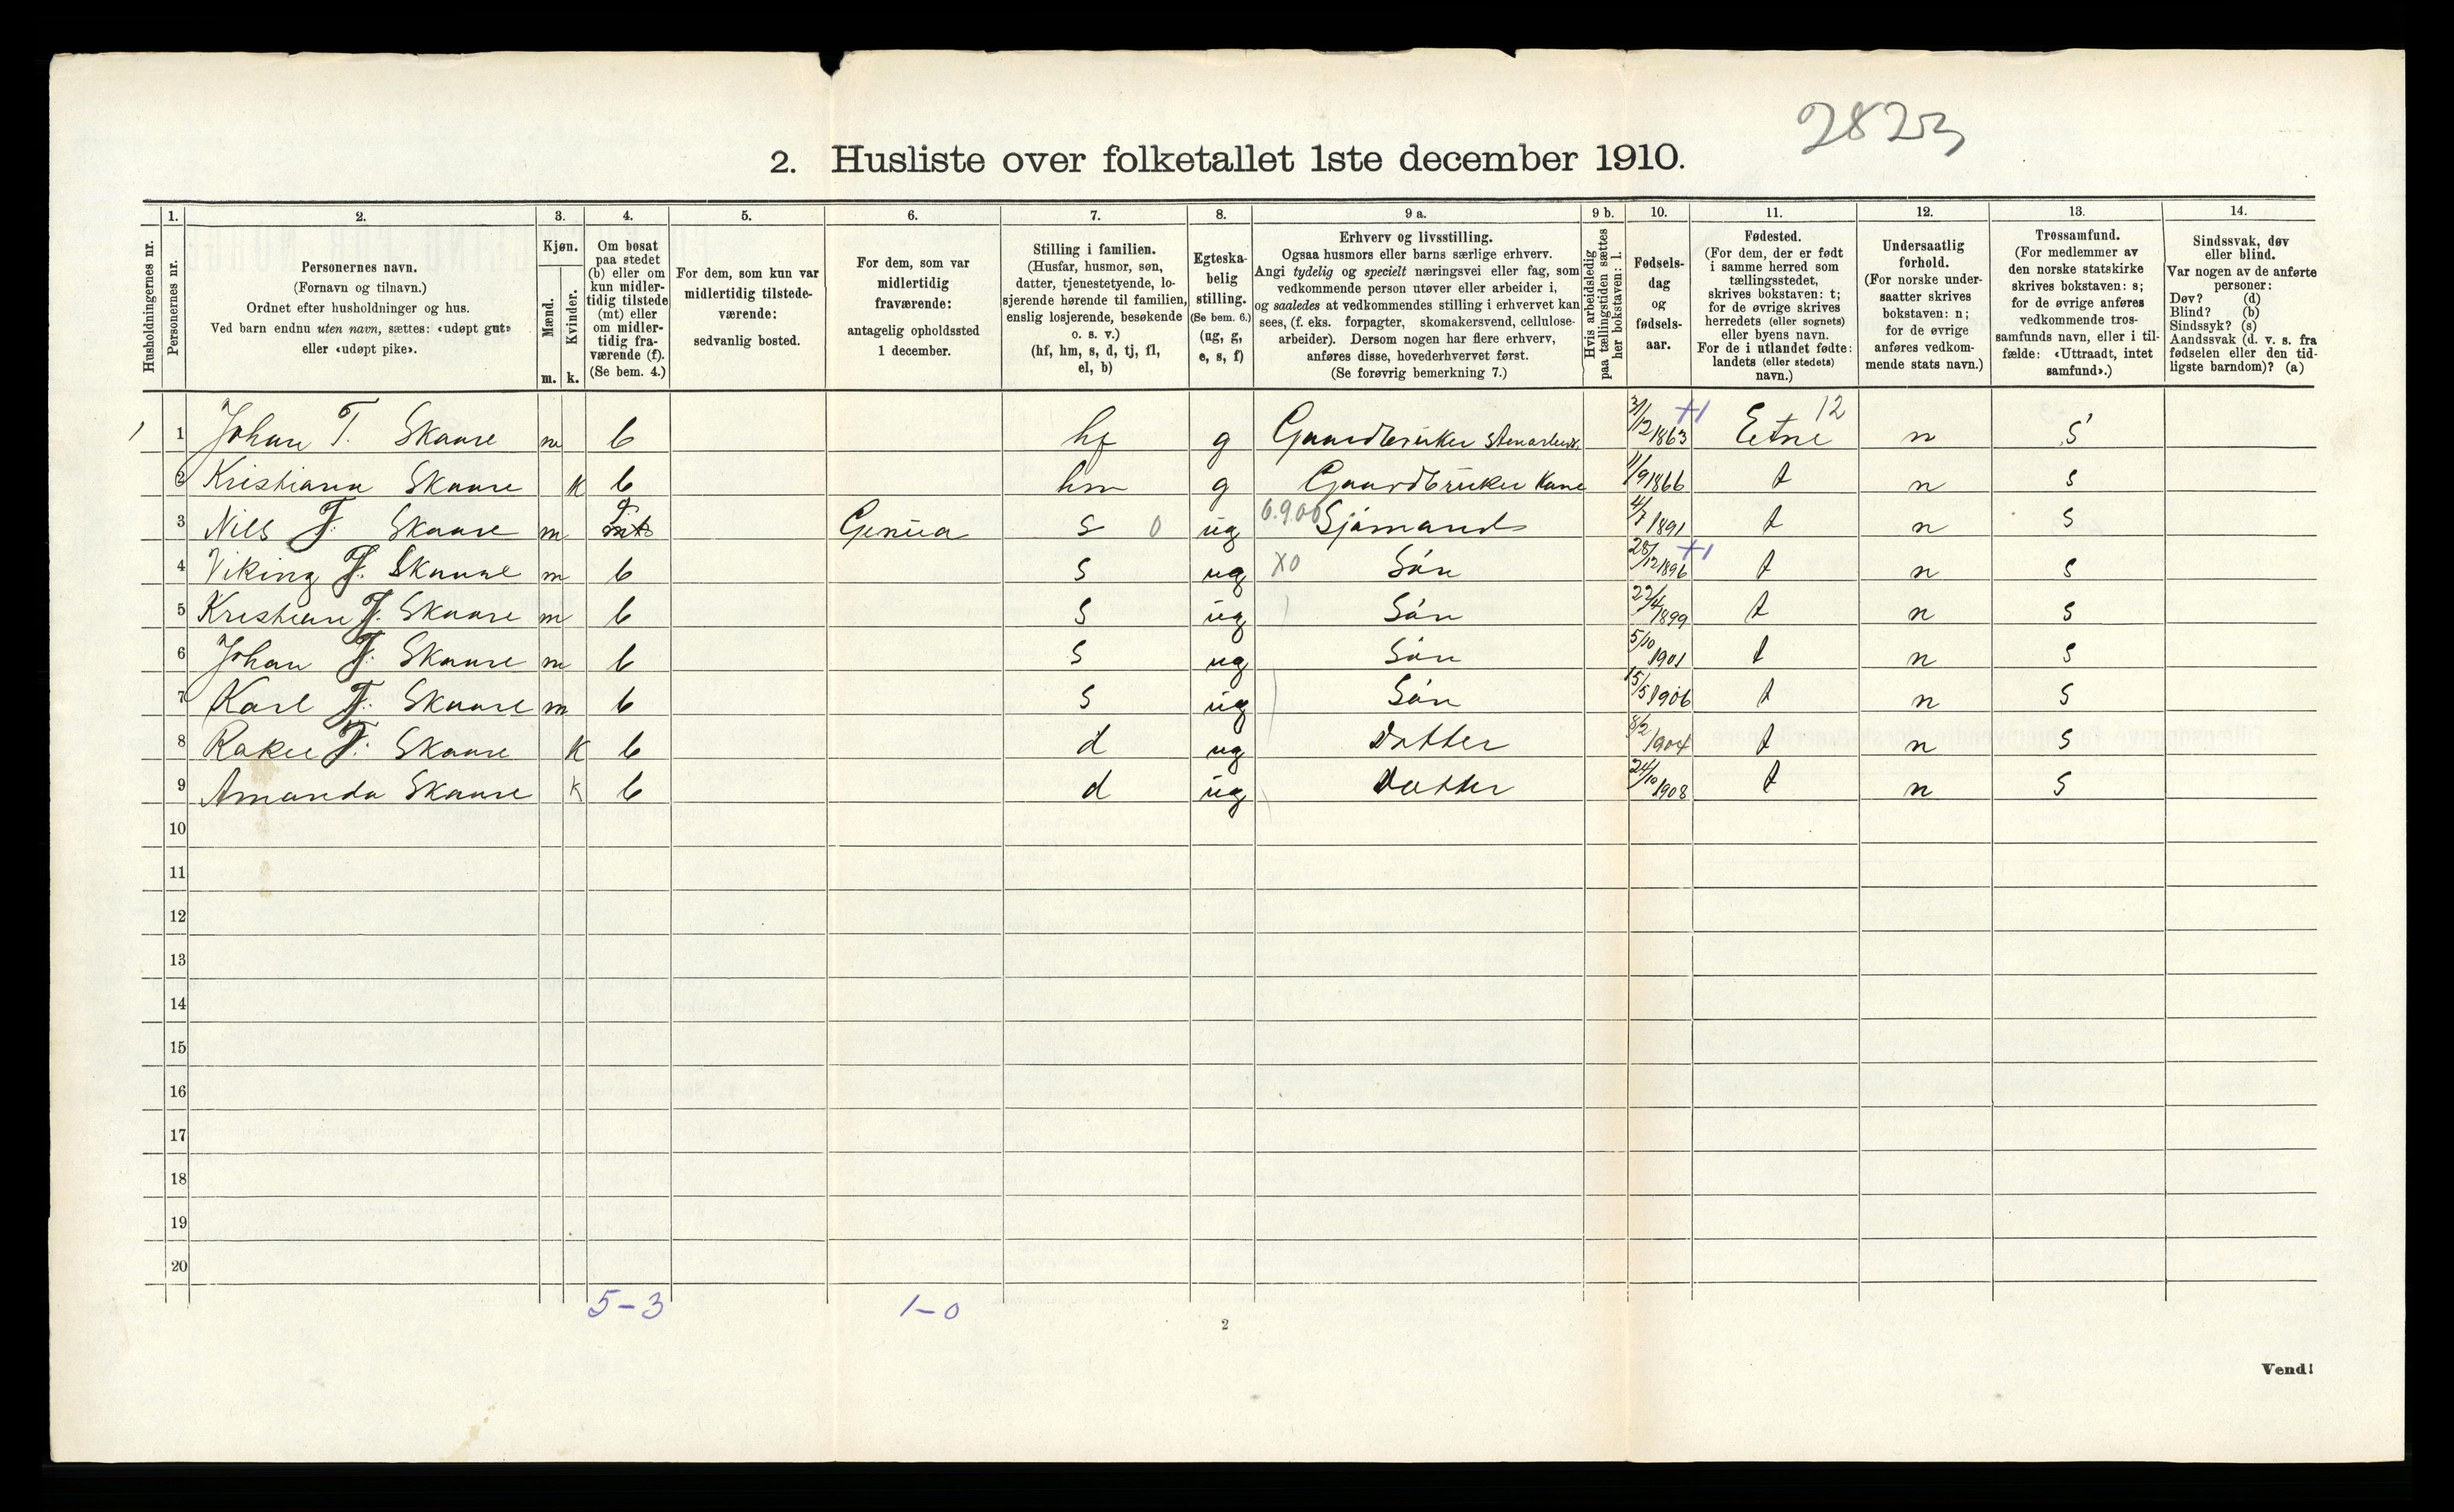 2823
2. Husliste over folketallet 1ste december 1910.
1. 2. 3. 4. 5. 6. 7. 8. 9 a. 9 b. 10. 11. 12. 13. 14.
Husholdningernes nr.
Personernes nr.
Personernes navn.
(Fornavn og tilnavn.)
Ordnet efter husholdninger og hus.
Ved barn endnu uten navn, sættes: «udøpt gut»
eller «udøpt pike».
Kjøn.
Mænd.
Kvinder.
m. k.
Om bosat
paa stedet
(b) eller om
kun midler-
tidig tilstede
(mt) eller
om midler-
tidig fra-
værende (f).
(Se bem. 4.)
For dem, som kun var
midlertidig tilstede-
værende:
sedvanlig bosted.
For dem, som var
midlertidig
fraværende:
antagelig opholdssted
1 december.
Stilling i familien.
(Husfar, husmor, søn,
datter, tjenestetyende, lo-
sjerende hørende til familien,
enslig losjerende, besøkende
o. s. v.)
(hf, hm, s, d, tj, fl,
el, b)
Egteska-
belig
stilling.
(Se bem. 6.)
(ug, g,
e, s, f)
Erhverv og livsstilling.
Ogsaa husmors eller barns særlige erhverv.
Angi tydelig og specielt næringsvei eller fag, som
vedkommende person utøver eller arbeider i,
og saaledes at vedkommendes stilling i erhvervet kan
sees, (f. eks. forpagter, skomakersvend, cellulose-
arbeider). Dersom nogen har flere erhverv,
anføres disse, hovederhvervet først.
(Se forøvrig bemerkning 7.)
Hvis arbeidsledig
paa tællingstiden sættes
her bokstaven: l.
Fødsels-
dag
og
fødsels-
aar.
Fødested.
(For dem, der er født
i samme herred som
tællingsstedet,
skrives bokstaven: t;
for de øvrige skrives
herredets (eller sognets)
eller byens navn.
For de i utlandet fødte:
landets (eller stedets)
navn.)
Undersaatlig
forhold.
(For norske under-
saatter skrives
bokstaven: n;
for de øvrige
anføres vedkom-
mende stats navn.)
Trossamfund.
(For medlemmer av
den norske statskirke
skrives bokstaven: s;
for de øvrige anføres
vedkommende tros-
samfunds navn, eller i til-
fælde: «Uttraadt, intet
samfund».)
Sindssvak, døv
eller blind.
Var nogen av de anførte
personer:
Døv? (d)
Blind? (b)
Sindssyk? (s)
Aandssvak (d. v. s. fra
fødselen eller den tid-
ligste barndom)? (a)
1 1 Johan T. Skaare m b hf g Gaardbruker 31/12 1863 +1 Etne 12 n s
2 Kristiana Skaare k b hm g Gaardbruker Kone 11/9 1866 t n s
3 Nils T. Skaare m f mt Genua s 0 ug 6.9.00 Sjömand 4/7 1891 t n s
4 Viking T. Skaare m b s ug X0 Sön 28/12 1896 +1 t n s
5 Kristian T. Skaare m b s ug Sön 27/4 1899 t n s
6 Johan T. Skaare m b s ug Sön 5/10 1901 t n s
7 Karl T. Skaare m b s ug Sön 15/5 1906 t n s
8 Rakel T. Skaare k b d ug Datter 8/2 1904 t n s
9 Amanda Skaare k b d ug Datter 24/10 1908 t n s
10
11
12
13
14
15
16
17
18
19
20
5-3 1-0
2
Vend!